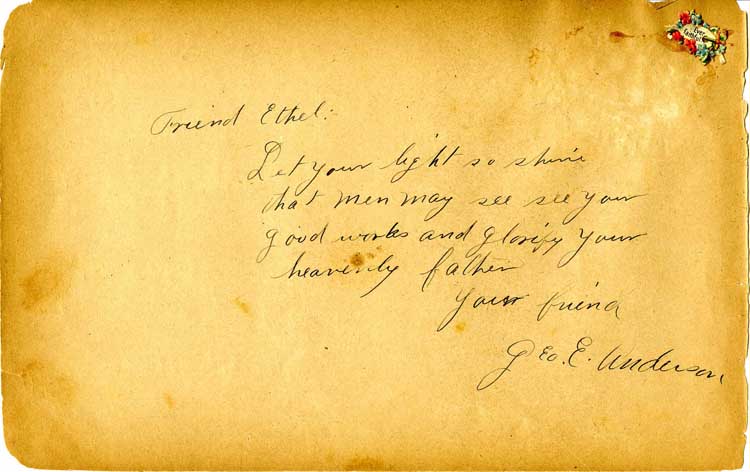 Ever
Faithful
Friend Ethel:
Let your light so shine
that men may see see your
good works and glorify your
heavenly father
Your friend
Geo. E. Anderson